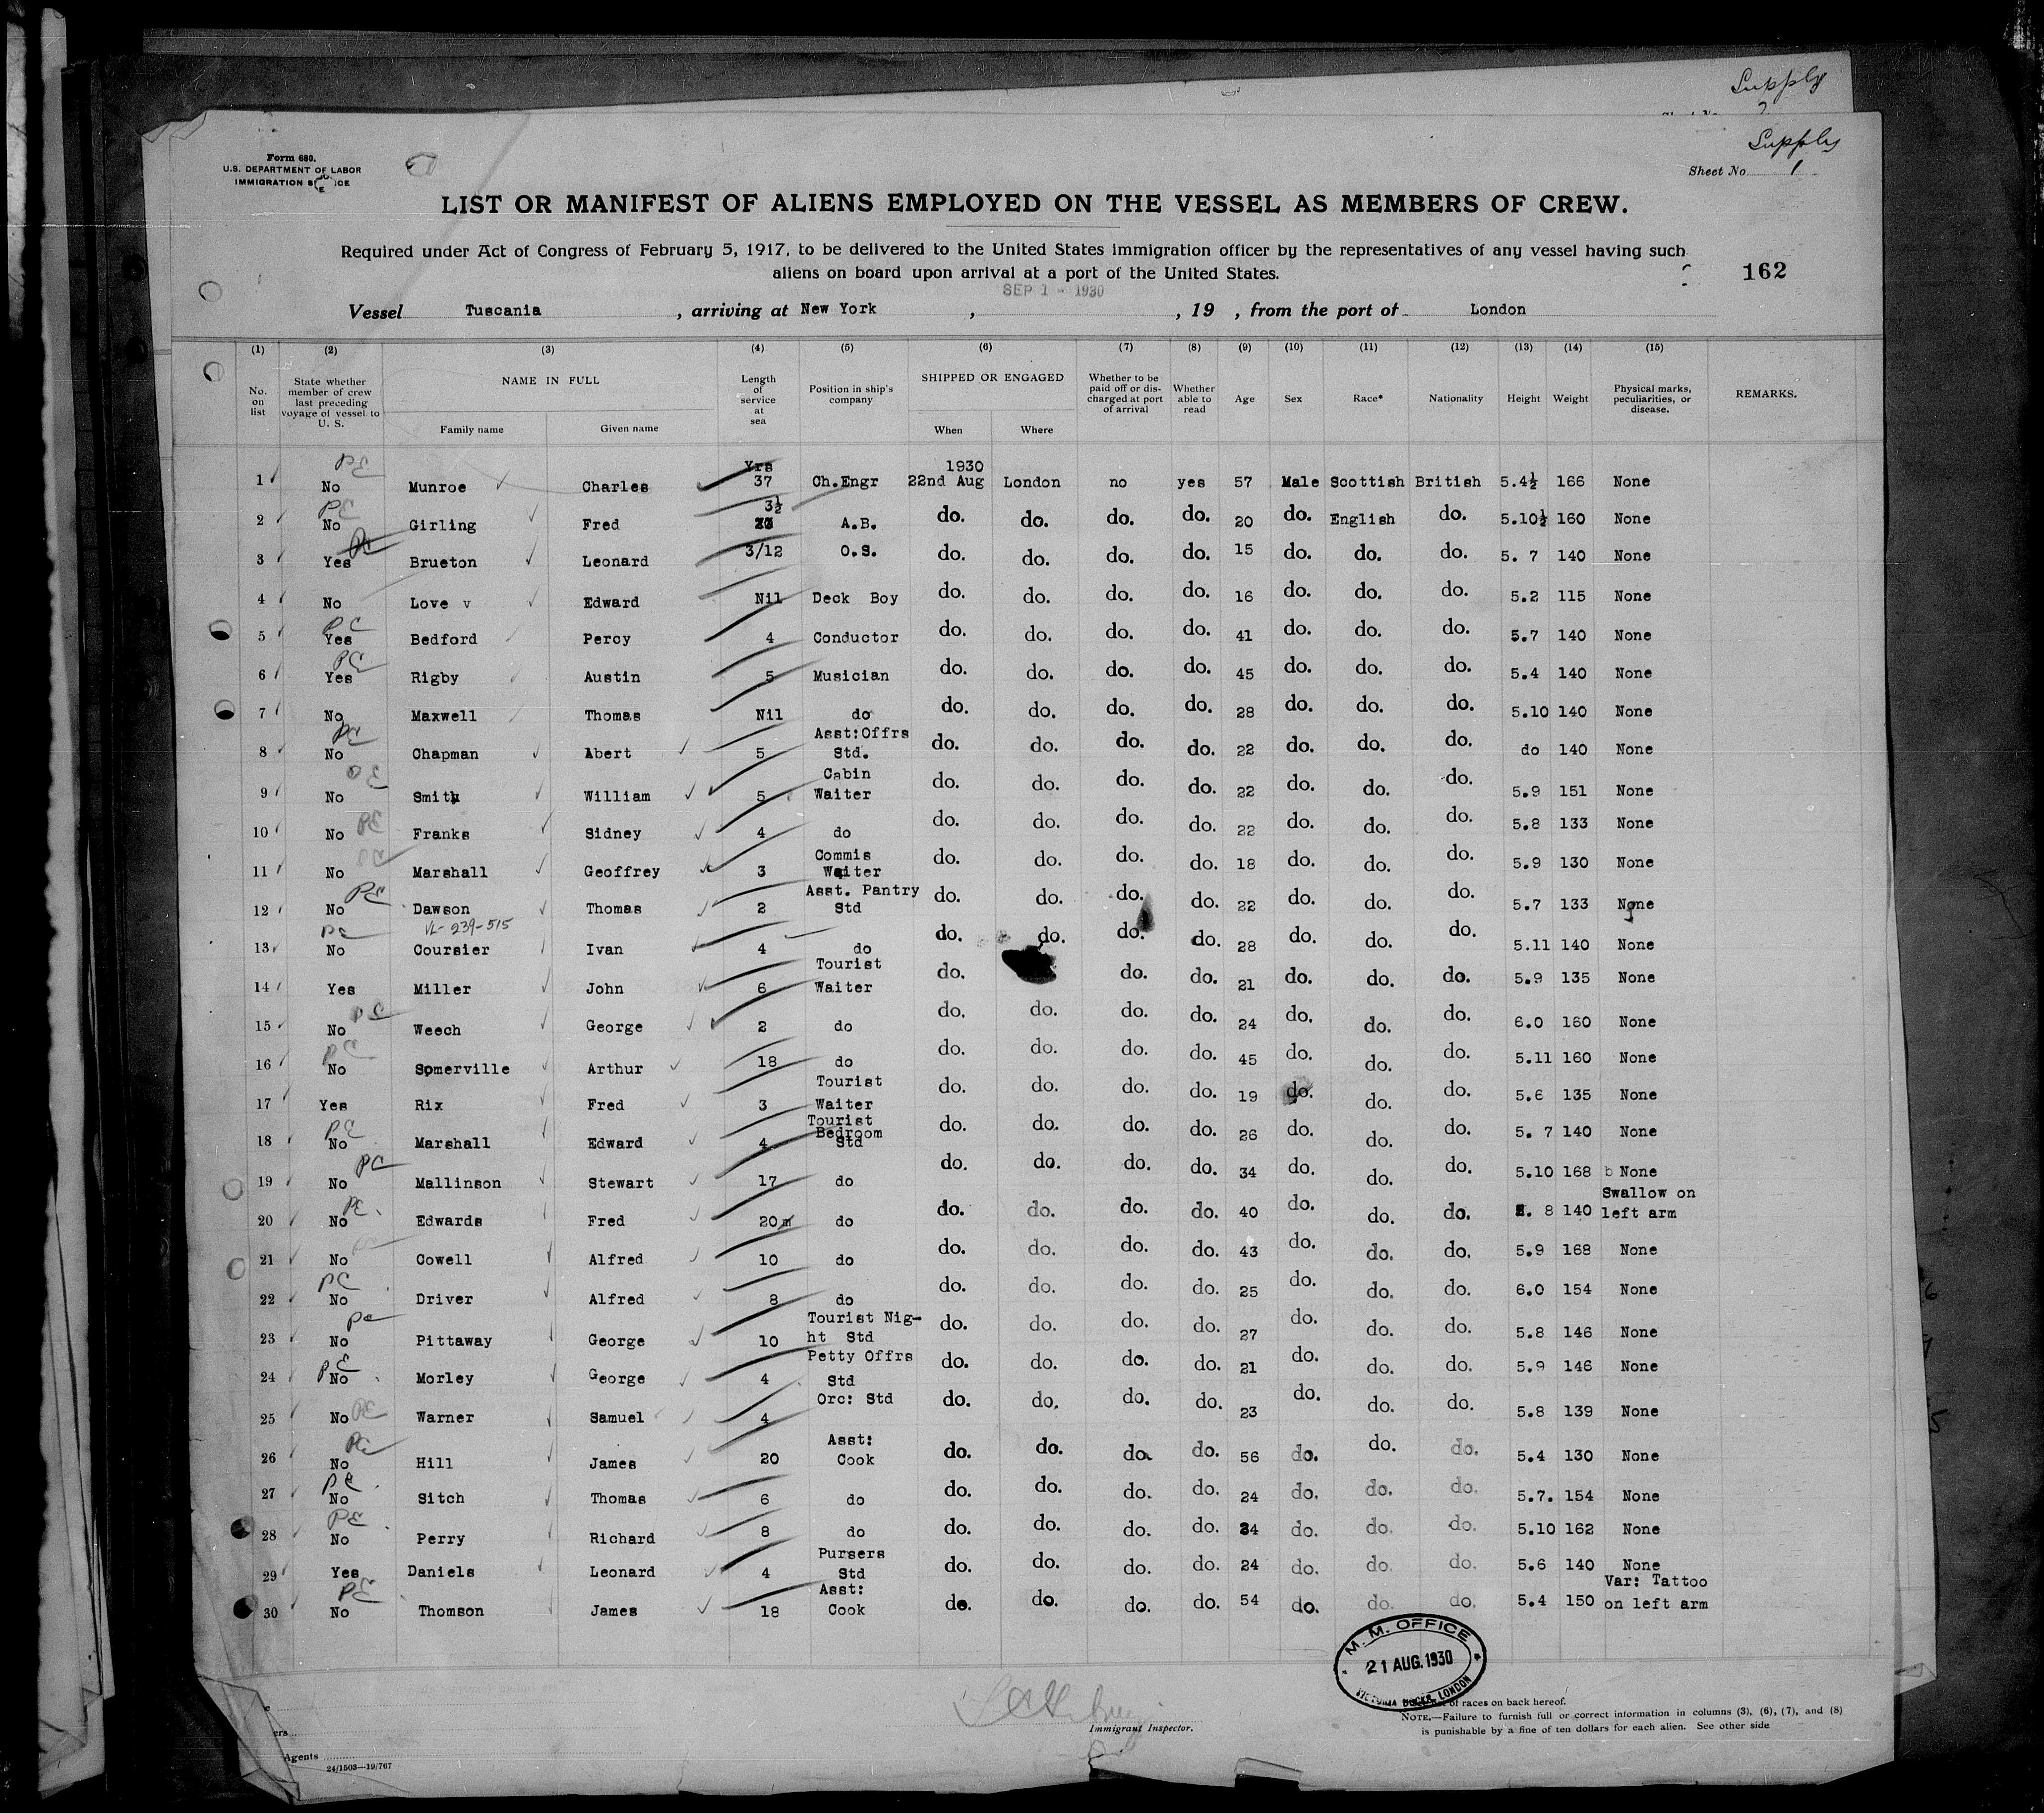 Supply
Supply
Form 680.
U.S. DEPARTMENT OF LABOR
IMMIGRATION
Sheet No. 1
LIST OR MANIFEST OF ALIENS EMPLOYED ON THE VESSEL AS MEMBERS OF CREW.
Required under Act of Congress of February 5, 1917, to be delivered to the United States immigration officer by the representatives of any vessel having such
aliens on board upon arrival at a port of the United States.
162
SEP 1 - 1930
Vessel Tuscania, arriving at New York, , 19 , from the port of London
(1) (2) (3) (4) (5) (6) (7) (8) (9) (10) (11) (12) (13) (14) (15)
No. on list State whether member of crew last preceding voyage of vessel to U. S. NAME IN FULL Family name Given name Length of service at sea Position in ship's company SHIPPED OR ENGAGED When Where Whether to be paid off or discharged at port of arrival Whether able to read Age Sex Race* Nationality Height Weight Physical marks, peculiarities, or disease. REMARKS.
Yrs 1930
1 PC No Munroe Charles 37 Ch.Engr 22nd Aug London no yes 57 Male Scottish British 5.4½ 166 None
2 PC No Girling Fred 3½ A.B. do. do. do. do. 20 do. English do. 5.10½ 160 None
3 PC Yes Brueton Leonard 3/12 O.S. do. do. do. do. 15 do. do. do. 5. 7 140 None
4 No Love v Edward Nil Deck Boy do. do. do. do. 16 do. do. do. 5.2 115 None
5 PC Yes Bedford Percy 4 Conductor do. do. do. do. 41 do. do. do. 5.7 140 None
6 PC Yes Rigby Austin 5 Musician do. do. do. do. 45 do. do. do. 5.4 140 None
7 No Maxwell Thomas Nil do do. do. do. do. 28 do. do. do. 5.10 140 None
8 PC No Chapman Abert 5 Asst:Offrs Std. do. do. do. do. 22 do. do. do. do 140 None
9 PC No Smith William 5 Cabin Waiter do. do. do. do. 22 do. do. do. 5.9 151 None
10 No PC Franks Sidney 4 do do. do. do. do. 22 do. do. do. 5.8 133 None
11 PC No Marshall Geoffrey 3 Commis Waiter do. do. do. do. 18 do. do. do. 5.9 130 None
12 PC No Dawson Thomas 2 Asst. Pantry Std do. do. do. do. 22 do. do. do. 5.7 133 None
VL-239-515
13 PC No Coursier Ivan 4 do do. do. do. do. 28 do. do. do. 5.11 140 None
14 Yes Miller John 6 Tourist Waiter do. do. do. 21 do. do. do. 5.9 135 None
15 PC No Weech George 2 do do. do. do. do. 24 do. do. do. 6.0 160 None
16 PC No Somerville Arthur 18 do do. do. do. do. 45 do. do. do. 5.11 160 None
17 Yes Rix Fred 3 Tourist Waiter do. do. do. do. 19 do. do. do. 5.6 135 None
18 PC No Marshall Edward 4 Tourist Bedroom Std do. do. do. do. 26 do. do. do. 5. 7 140 None
19 PC No Mallinson Stewart 17 do do. do. do. do. 34 do. do. do. 5.10 168 b None
20 PC No Edwards Fred 20m do do. do. do. do. 40 do. do. do. . 8 140 Swallow on left arm
21 No Cowell Alfred 10 do do. do. do. do. 43 do. do. do. 5.9 168 None
22 PC No Driver Alfred 8 do do. do. do. do. 25 do. do. do. 6.0 154 None
23 PC No Pittaway George 10 Tourist Nig-ht Std do. do. do. do. 27 do. do. do. 5.8 146 None
24 PC No Morley George 4 Petty Offrs Std do. do. do. do. 21 do. do. do. 5.9 146 None
25 No PC Warner Samuel 4 Orc: Std do. do. do. do. 23 do. do. do. 5.8 139 None
26 PC No Hill James 20 Asst: Cook do. do. do. do. 56 do. do. do. 5.4 130 None
27 PC No Sitch Thomas 6 do do. do. do. do. 24 do. do. do. 5.7. 154 None
28 PC No Perry Richard 8 do do. do. do. do. 34 do. do. do. 5.10 162 None
29 Yes Daniels Leonard 4 Pursers Std do. do. do. do. 24 do. do. do. 5.6 140 None
30 PC No Thomson James 18 Asst: Cook do. do. do. do. 54 do. do. do. 5.4 150 Var: Tattoo on left arm
M. M. OFFICE
21 AUG. 1930
VICTORIA DOCKS, LONDON
of races on back hereof.
Immigrant Inspector.
NOTE.—Failure to furnish full or correct information in columns (3), (6), (7), and (8)
is punishable by a fine of ten dollars for each alien. See other side
Agents
24/1503—19/767